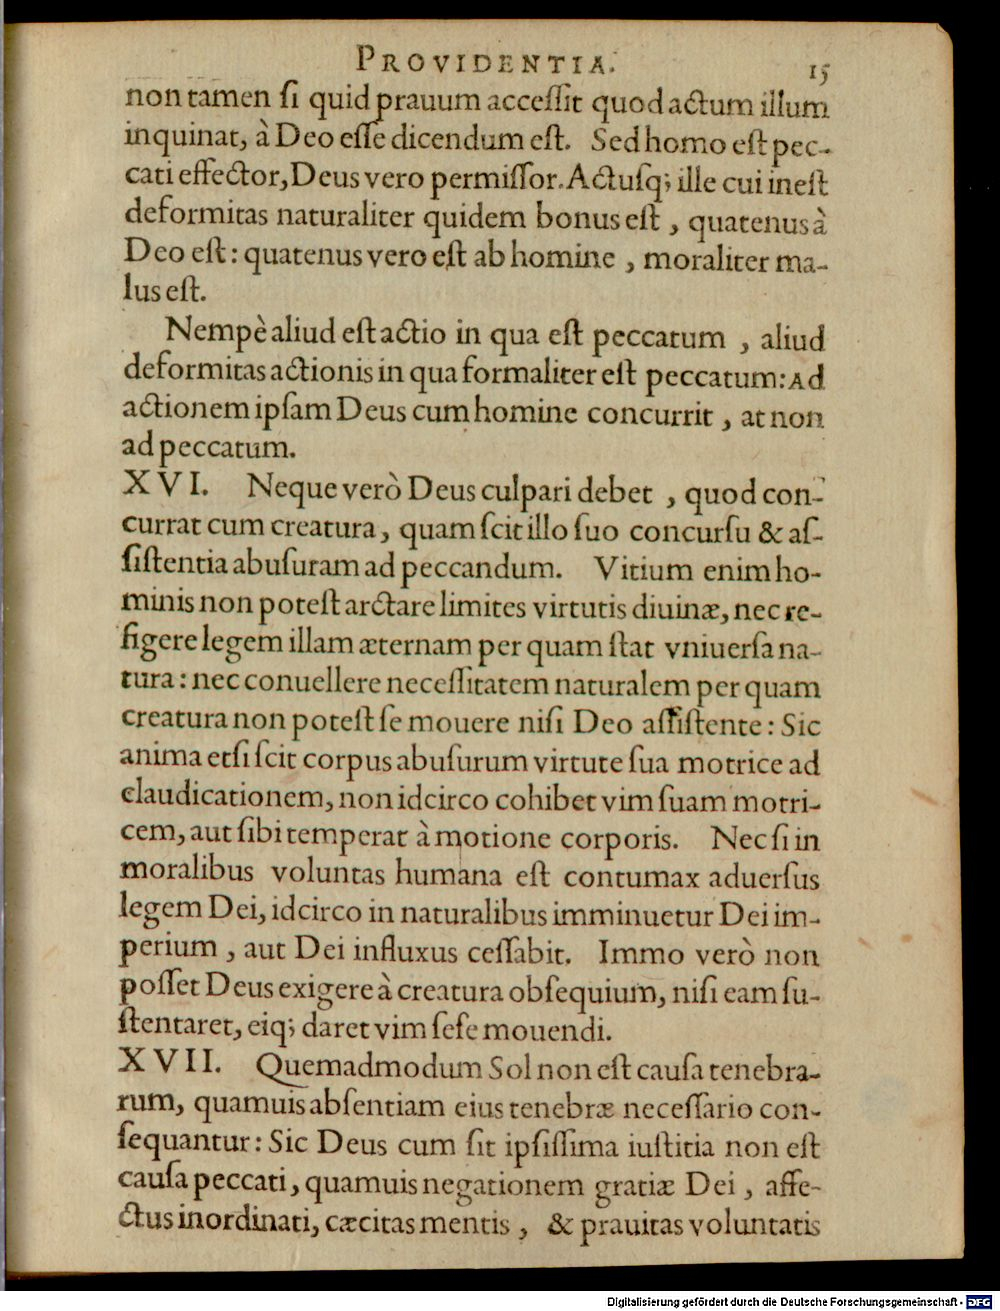 PROVIDENTIA. 15
non tamen ſi quid prauum acceſſit quod actum illum
inquinat, à Deo eſſe dicendum eſt. Sed homo eſt pec-
cati effector, Deus vero permiſſor. Actuſq; ille cui ineſt
deformitas naturaliter quidem bonus eſt, quatenus à
Deo eſt: quatenus vero eſt ab homine, moraliter ma-
lus eſt.
Nempè aliud eſt actio in qua eſt peccatum, aliud
deformitas actionis in qua formaliter eſt peccatum: Ad
actionem ipſam Deus cum homine concurrit, at non
ad peccatum.
XVI. Neque verò Deus culpari debet, quod con-
currat cum creatura, quam ſcit illo ſuo concurſu & aſ-
ſiſtentia abuſuram ad peccandum. Vitium enim ho-
minis non poteſt arctare limites virtutis diuinæ, nec re-
figere legem illam æternam per quam ſtat vniuerſa na-
tura: nec conuellere neceſſitatem naturalem per quam
creatura non poteſt ſe mouere niſi Deo aſſiſtente: Sic
anima etſi ſcit corpus abuſurum virtute ſua motrice ad
claudicationem, non idcirco cohibet vim ſuam motri-
cem, aut ſibi temperat à motione corporis. Nec ſi in
moralibus voluntas humana eſt contumax aduerſus
legem Dei, idcirco in naturalibus imminuetur Dei im-
perium, aut Dei influxus ceſſabit. Immo verò non
poſſet Deus exigere à creatura obſequium, niſi eam ſu-
ſtentaret, eiq; daret vim ſeſe mouendi.
XVII. Quemadmodum Sol non eſt cauſa tenebra-
rum, quamuis abſentiam eius tenebræ neceſſario con-
ſequantur: Sic Deus cum ſit ipſiſſima iuſtitia non eſt
cauſa peccati, quamuis negationem gratiæ Dei, affe-
ctus inordinati, cæcitas mentis, & prauitas voluntatis
Digitalisierung gefördert durch die Deutsche Forschungsgemeinschaft - DFG